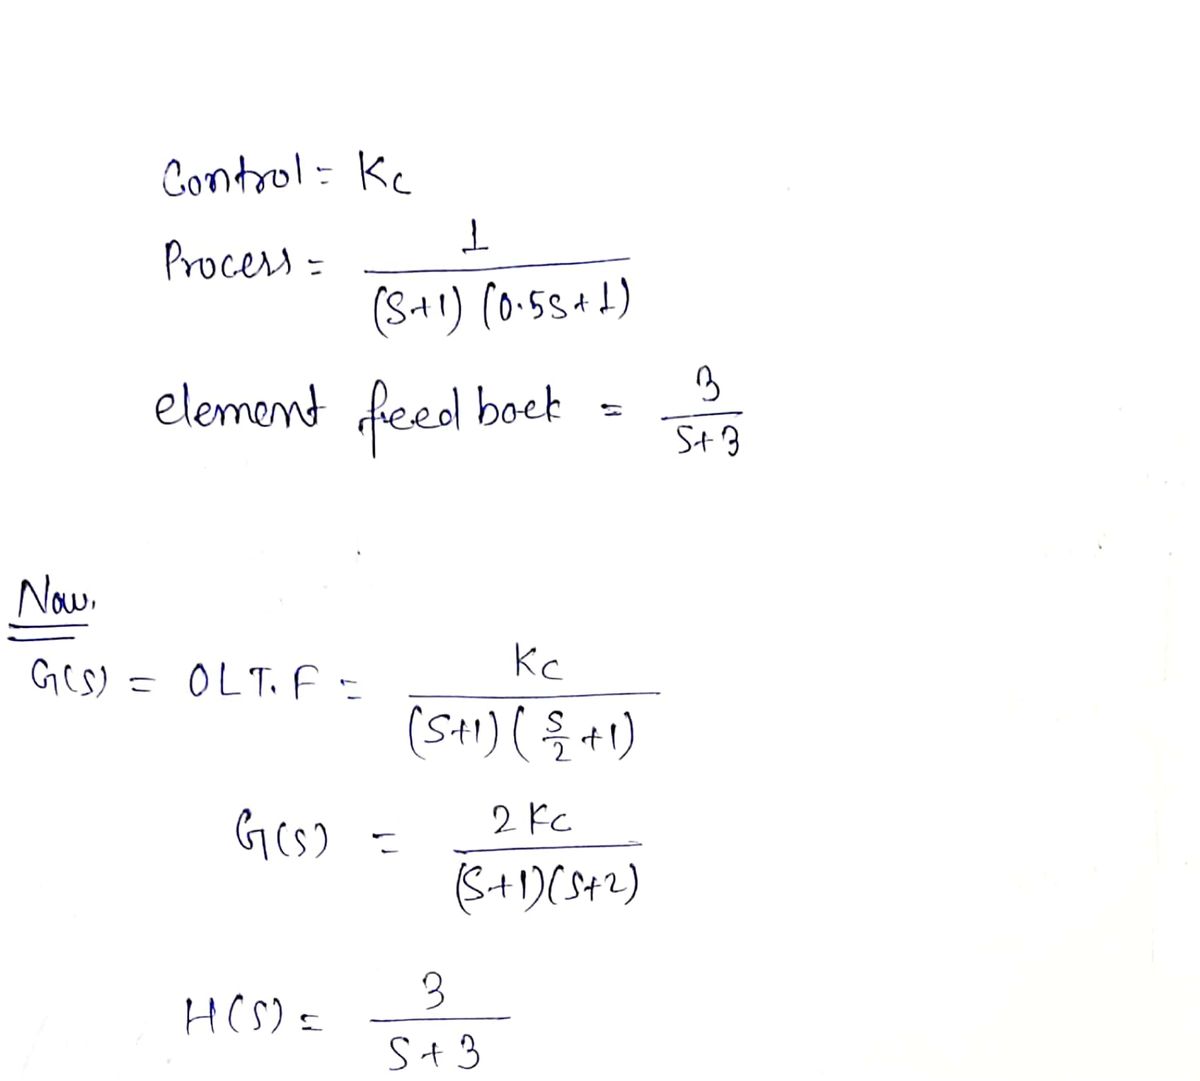 Control = Kc
Process = 1 / (S+1) (0.5S+1)
element feed boek = 3 / S+3
Now,
G(S) = OLT.F = Kc / (S+1) (S/2 +1)
G(S) = 2 Kc / (S+1)(S+2)
H(S) = 3 / S+3